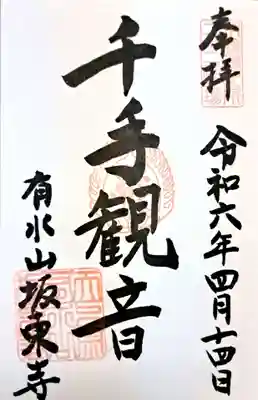 奉拝
令和六年四月十四日
千手観音
有水山坂東寺